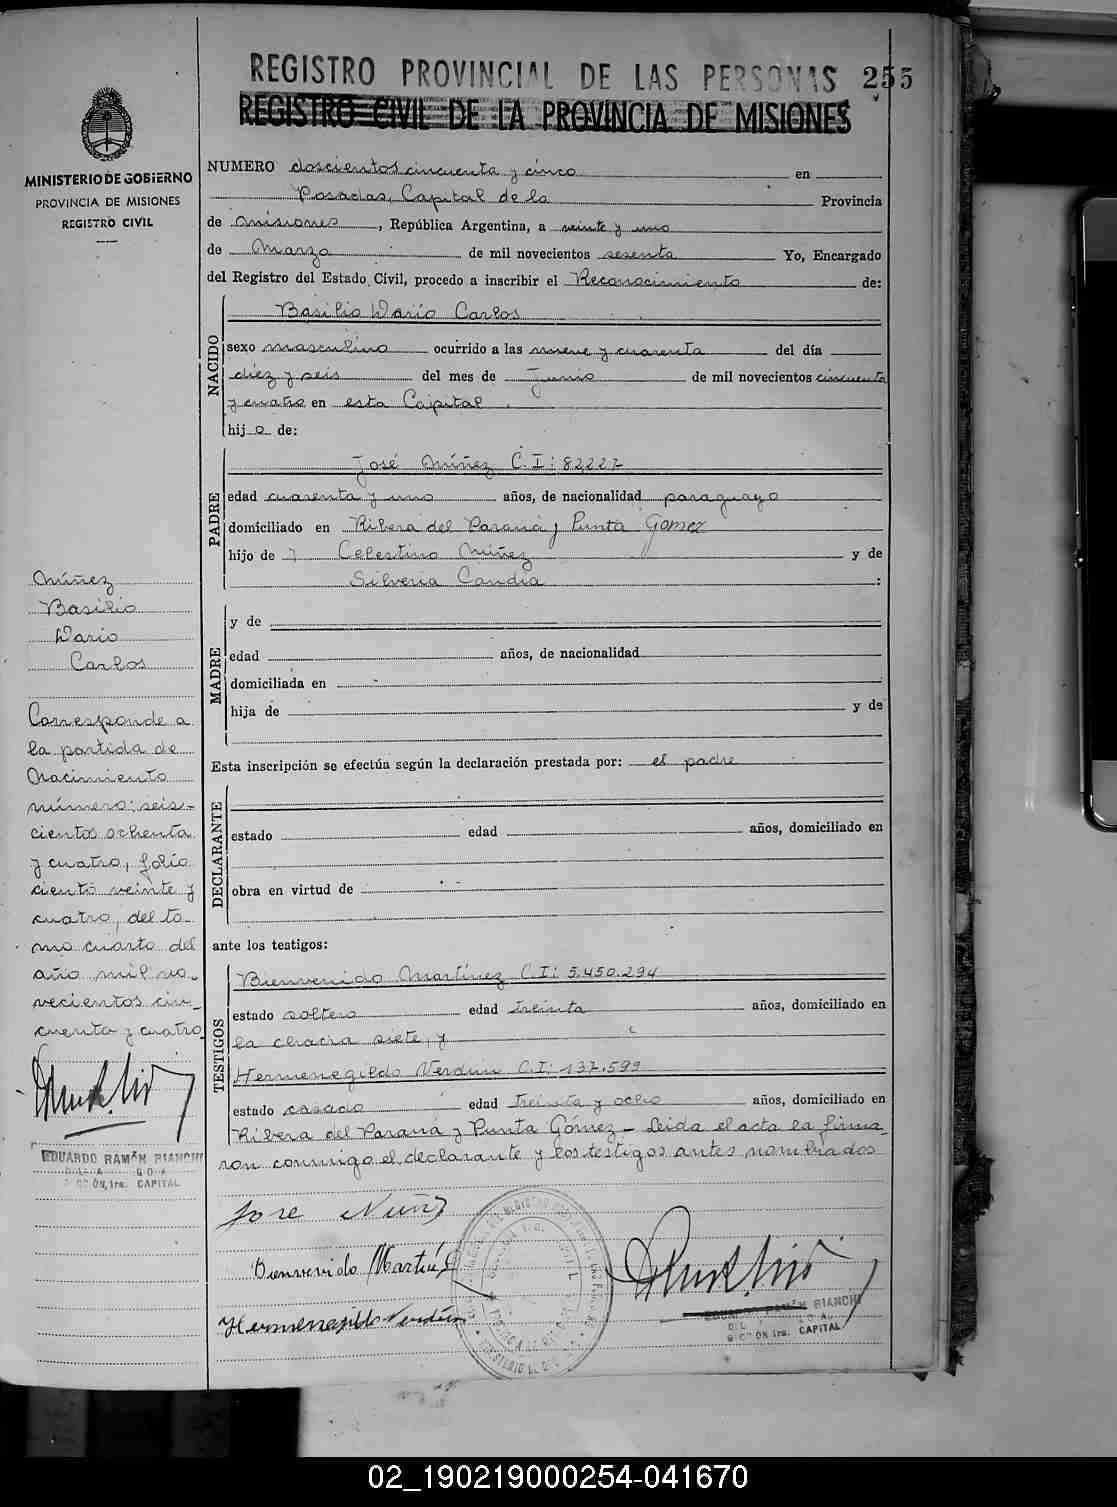 REGISTRO PROVINCIAL DE LAS PERSONAS 255
REGISTRO CIVIL DE LA PROVINCIA DE MISIONES
MINISTERIO DE GOBIERNO
PROVINCIA DE MISIONES
REGISTRO CIVIL
NUMERO doscientos cincuenta y cinco en
Posadas, Capital de la Provincia
de Misiones, República Argentina, a veinte y uno
de Marzo de mil novecientos sesenta Yo, Encargado
del Registro del Estado Civil, procedo a inscribir el Reconocimiento de:
NACIDO
Basilio Dario Carlos
sexo masculino ocurrido a las nueve y cuarenta del día
diez y seis del mes de Junio de mil novecientos cincuenta
y cuatro en esta Capital.
hijo de:
PADRE
José Núñez C.I: 82227
edad cuarenta y uno años, de nacionalidad paraguayo
domiciliado en Ribera del Paraná y Punta Gomez
hijo de Celestino Núñez y de
Silveria Candia :
MADRE
y de
edad años, de nacionalidad
domiciliada en
hija de y de
Esta inscripción se efectúa según la declaración prestada por: el padre
DECLARANTE
estado edad años, domiciliado en
obra en virtud de
ante los testigos:
TESTIGOS
Bienvenido Martínez C.I: 5.450.294
estado soltero edad treinta años, domiciliado en
la chacra siete, y
Hermenegildo Verdun C.I: 137.599
estado casado edad treinta y ocho años, domiciliado en
Ribera del Paraná y Punta Gómez - Leida el acta la firma-
ron conmigo el declarante y los testigos antes nombrados
Jose Nuñz
Bienvenido Martínez
Hermenegildo Verdún
EDUARDO RAMÓN BIANCHI
CAPITAL
Núñez
Basilio
Dario
Carlos
Corresponde a
la partida de
Nacimiento
número: seis-
cientos ochenta
y cuatro, folio
ciento veinte y
cuatro, del to-
mo cuarto del
año mil no-
vecientos cin-
cuenta y cuatro
EDUARDO RAMÓN BIANCHI
CAPITAL
02_190219000254-041670